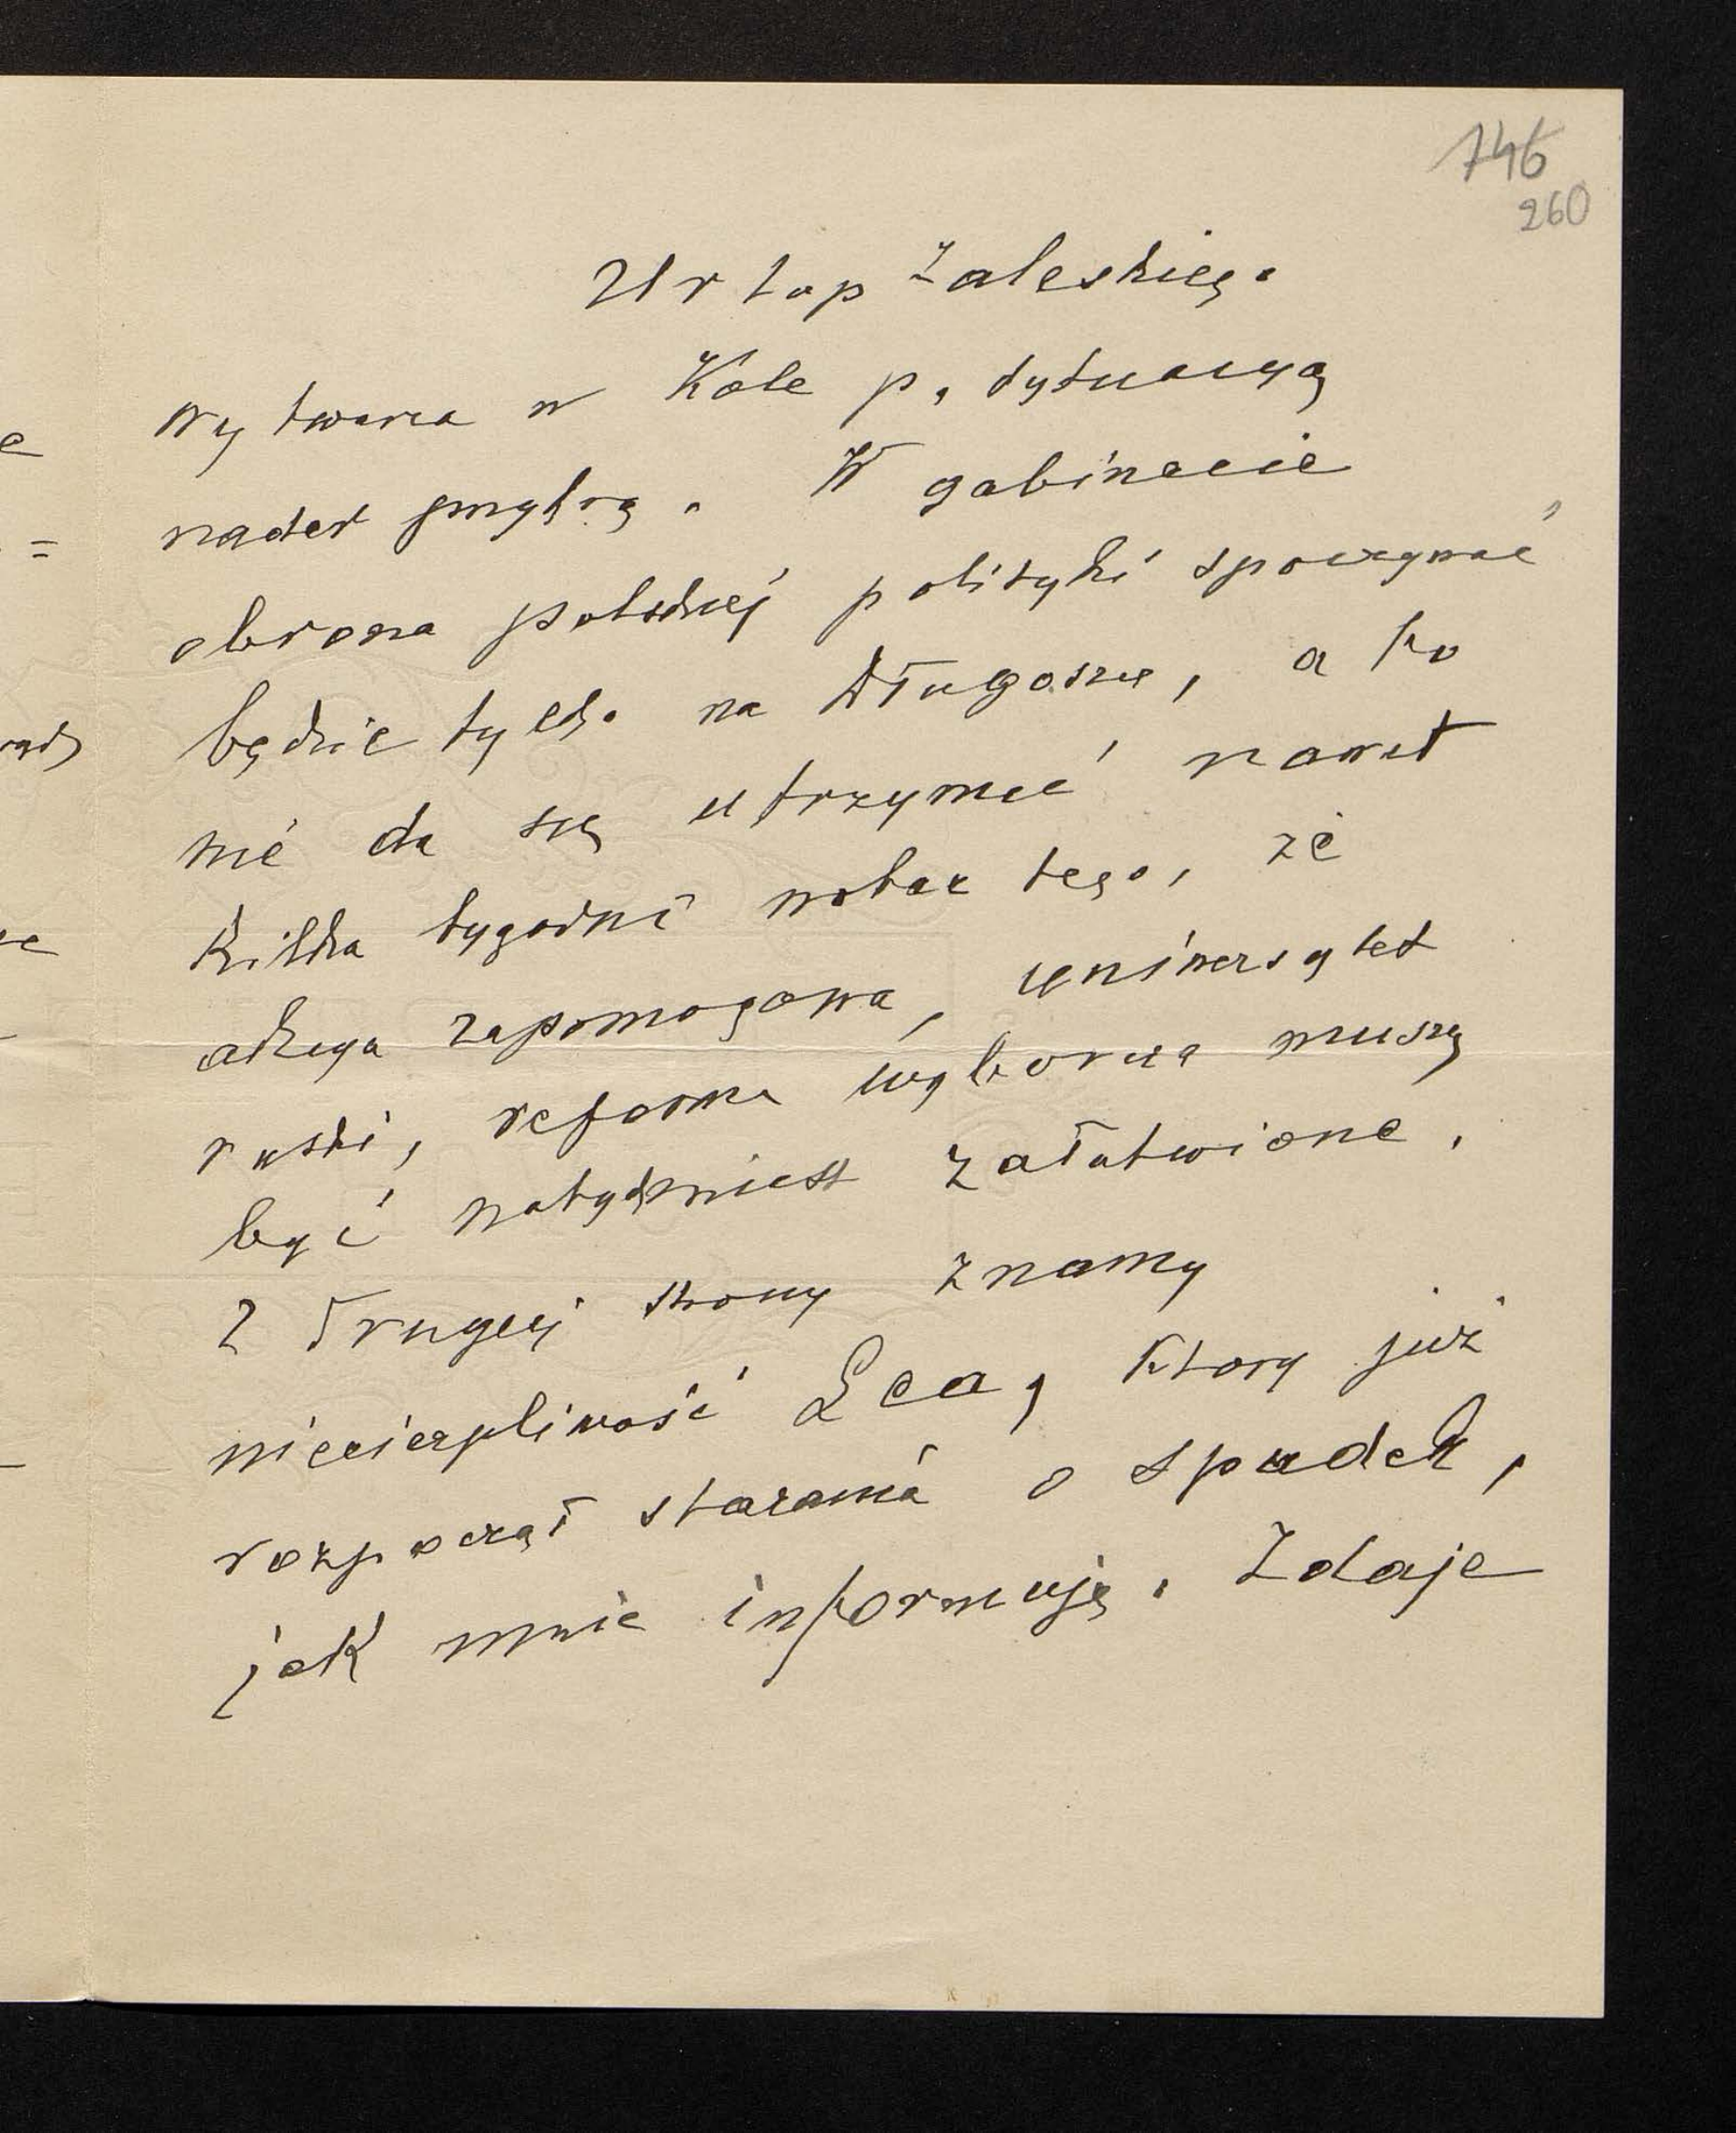 746
260
Urlop Zaleskiego
wytwarza w Kole p. sytuacyą
nader przykrą. W gabinecie
obrona polskiej polityki spoczywać
będzie tylko na Długoszu, a to
nie da się utrzymać nawet
kilka tygodni wobec tego, że
akcya zapomogowa, uniwersytet
ruski, reforma wyborcza muszą
być natychmiast załatwione.
Z drugiej strony znamy
niecierpliwość Lea, który już
rozpoczął starania o spadek,
jak mnie informują. Zdaje